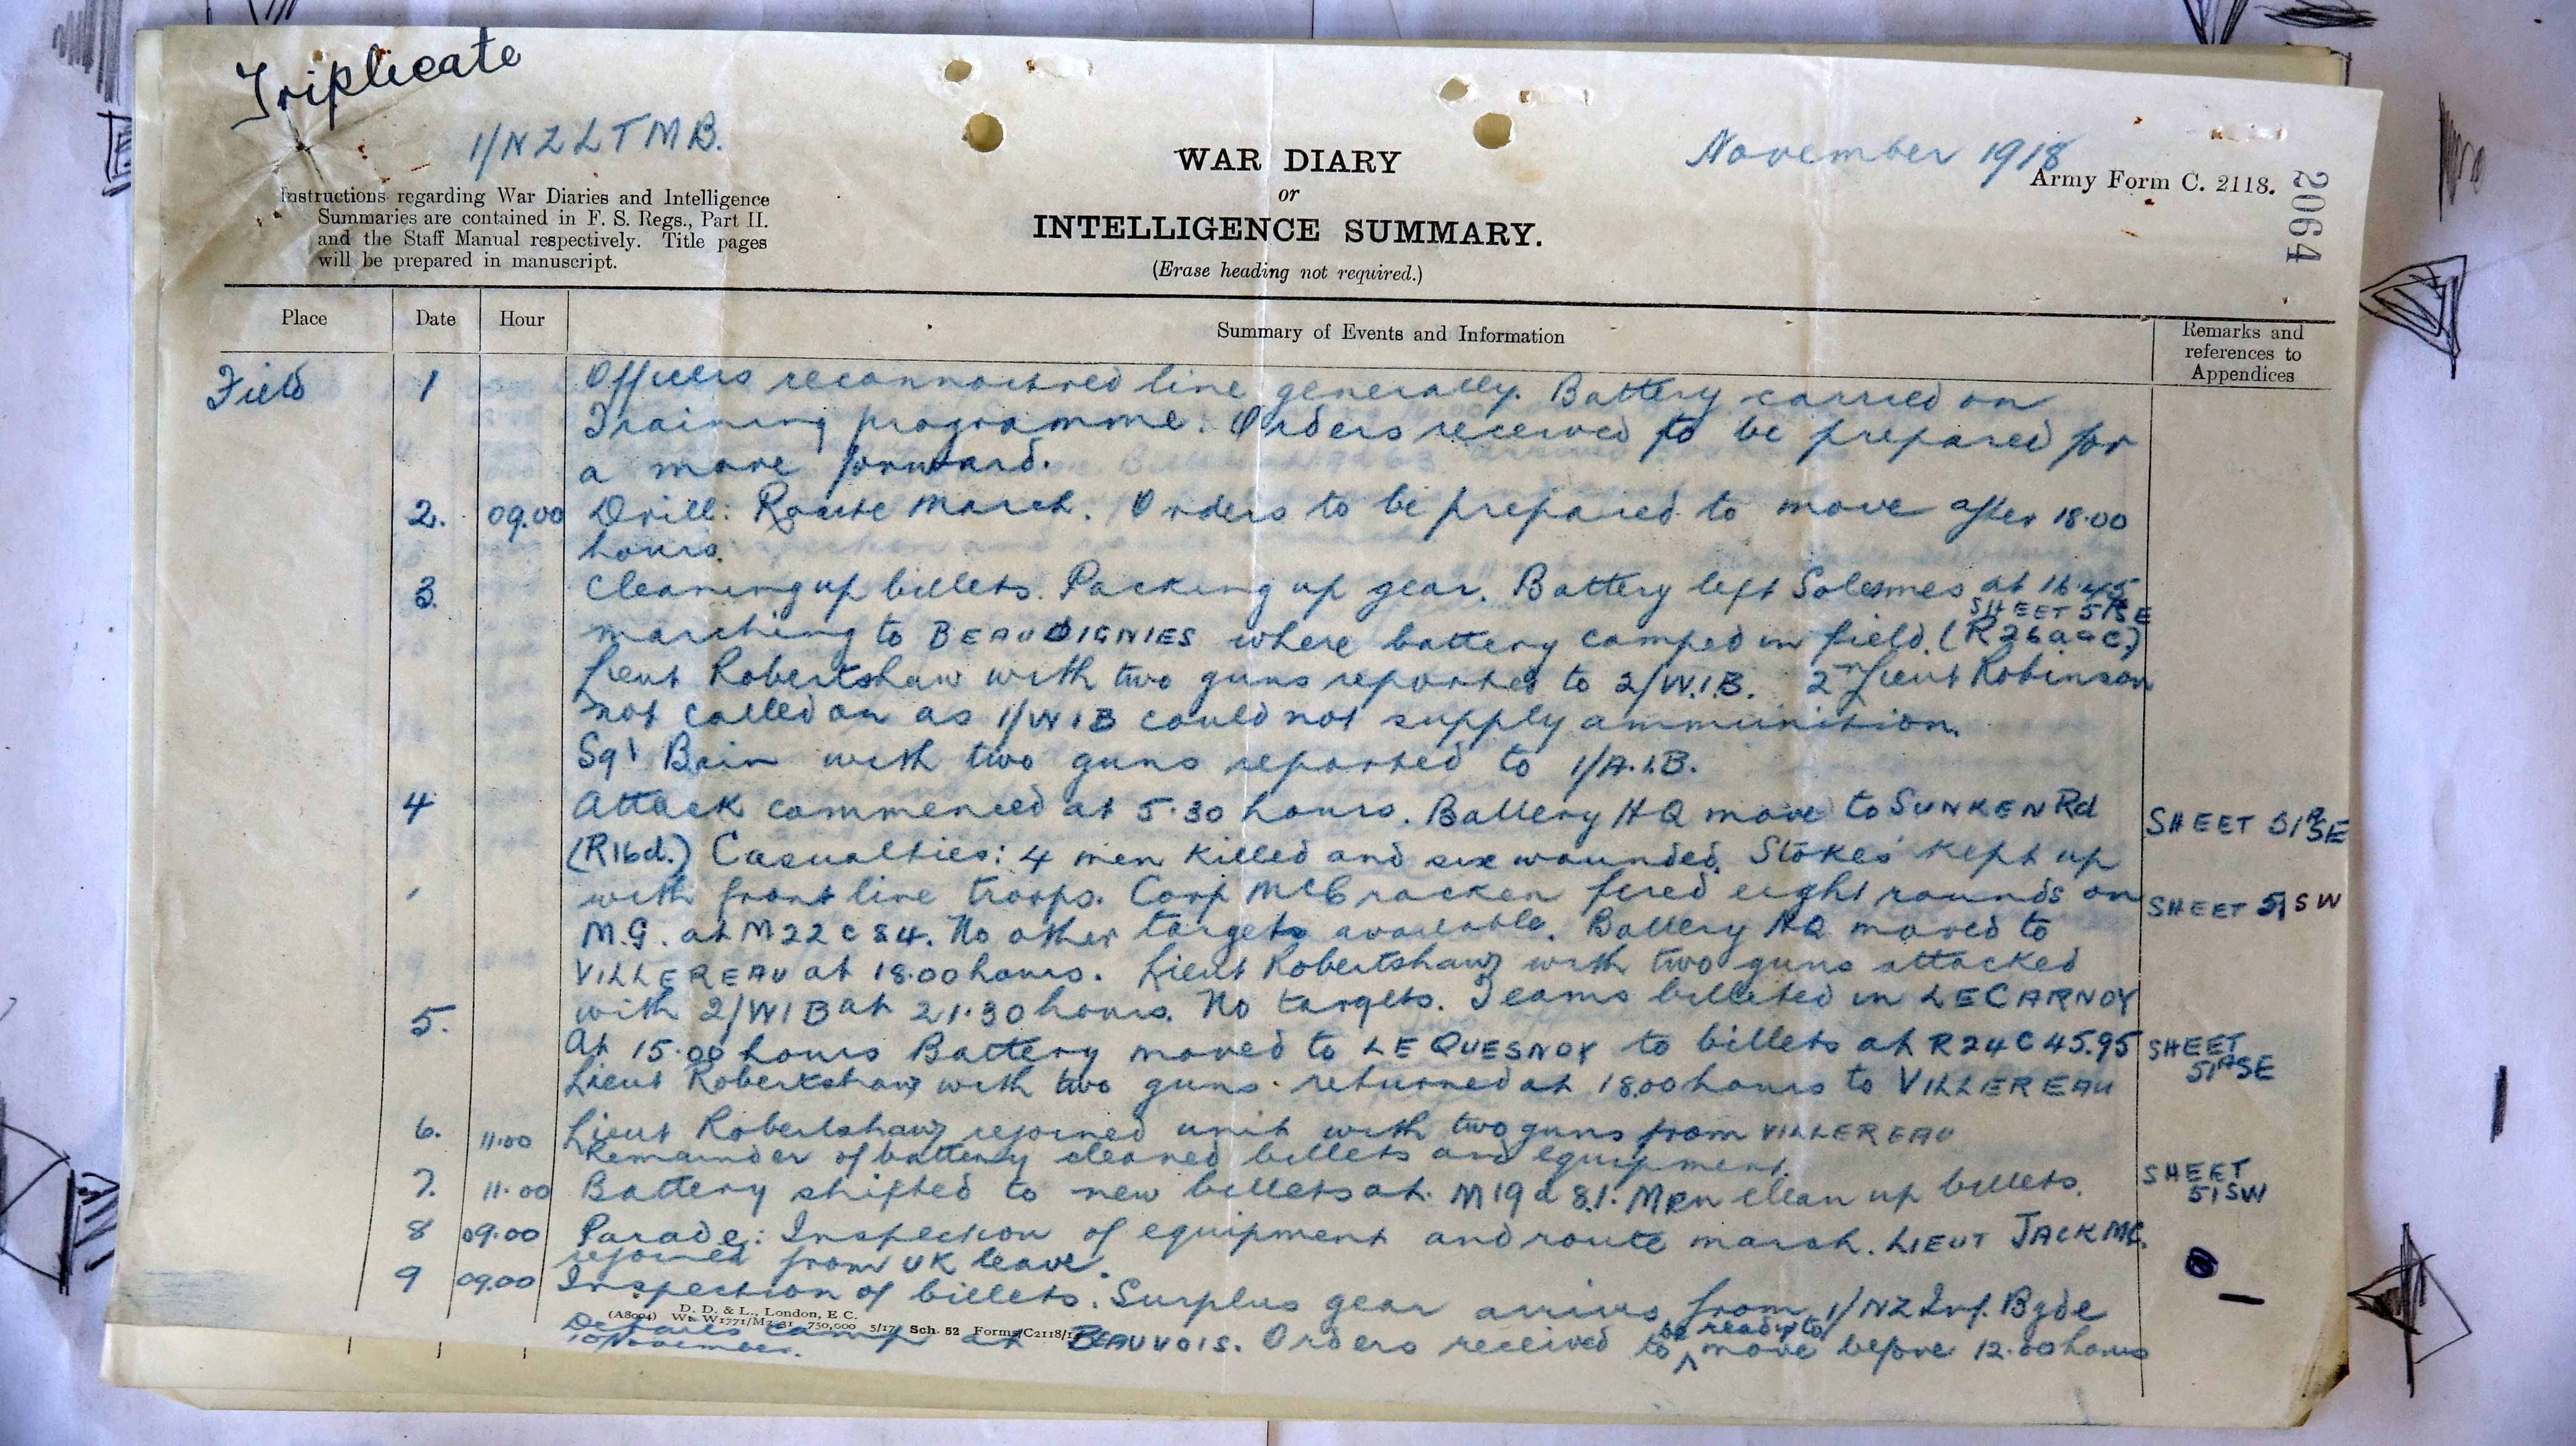 Triplicate
1/NZLTMB.
November 1918
Army Form C. 2118.
2064
Instructions regarding War Diaries and Intelligence
Summaries are contained in F. S. Regs., Part II.
and the Staff Manual respectively. Title pages
will be prepared in manuscript.
WAR DIARY
or
INTELLIGENCE SUMMARY.
(Erase heading not required.)
Place Date Hour Summary of Events and Information Remarks and
references to
Appendices
Field 1 Officers reconnoitred line generally. Battery carried on
Training programme. Orders received to be prepared for
a move forward.
2. 09.00 Drill: Route March. Orders to be prepared to move after 18.00
hours.
3. Cleaning up billets. Packing up gear. Battery left Solesmes at 16.45
SHEET 51ASE
marching to BEAUDIGNIES where battery camped in field. (R26a&c.)
Lieut Robertshaw with two guns reported to 2/W.I.B. 2nd Lieut Robinson
not called on as 1/WIB could not supply ammunition.
Sgt Bain with two guns reported to 1/A.I.B.
4 Attack commenced at 5.30 hours. Battery HQ move to SUNKEN Rd SHEET 51ASE
(R16d.) Casualties: 4 men killed and six wounded. Stokes' kept up
with front line troops. Corp McCracken fired eight rounds on SHEET 51SW
M.G. at M22c84. No other targets available. Battery HQ moved to
VILLEREAU at 18.00 hours. Lieut Robertshaw with two guns attacked
with 2/WIB at 21.30 hours. No targets. Teams billeted in LECARNOY
5. At 15.00 hours Battery moved to LE QUESNOY to billets at R24C45.95 SHEET
51ASE
Lieut Robertshaw with two guns returned at 18.00 hours to VILLEREAU
6. 11.00 Lieut Robertshaw rejoined unit with two guns from VILLEREAU
Remainder of battery cleaned billets and equipment.
7. 11.00 Battery shifted to new billets at M19d8.1. Men clean up billets. SHEET
51SW
8 09.00 Parade: Inspection of equipment and route march. LIEUT JACK MC.
rejoined from UK leave.
9 09.00 Inspection of billets. Surplus gear arrives from 1/NZ Inf. Bgde
D. D. & L., London, E C.
(A8094) Wt. W1771/M2031 750,000 5/17 Sch. 52 Forms/C2118/14
Details camp at BEAUVOIS. Orders received to be ready to move before 12.00 hours
10 November.